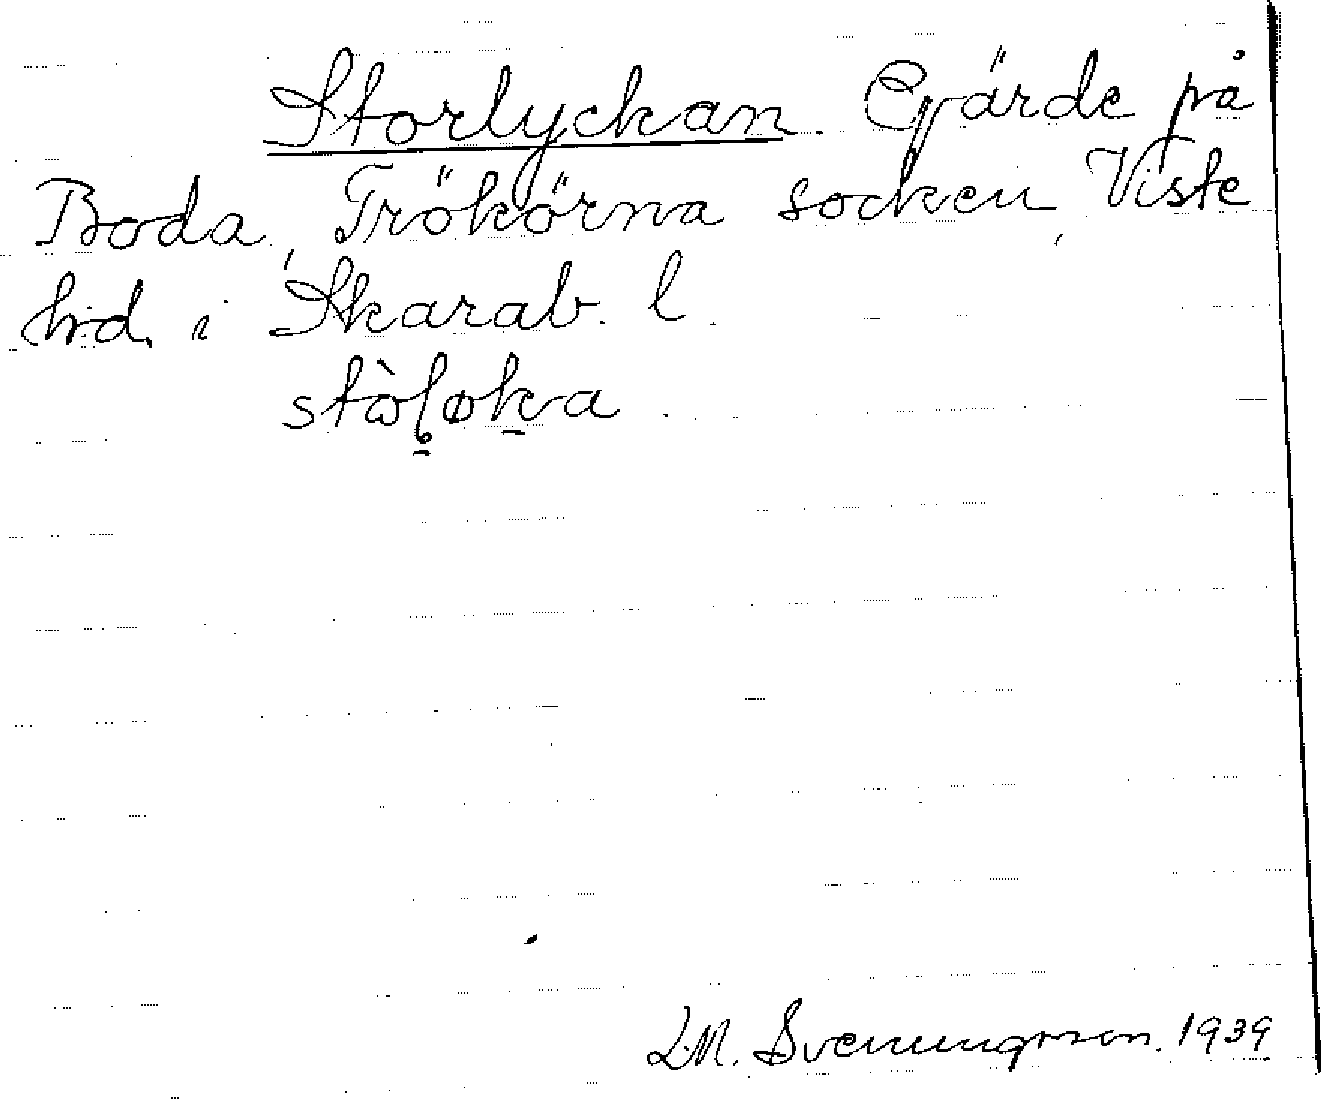 Storlyckan. Gärde på
Boda, Trökörna socken, Viste
hrd. i Skarab. l.
stòl̥øka.
L.M. Svenungsson. 1939